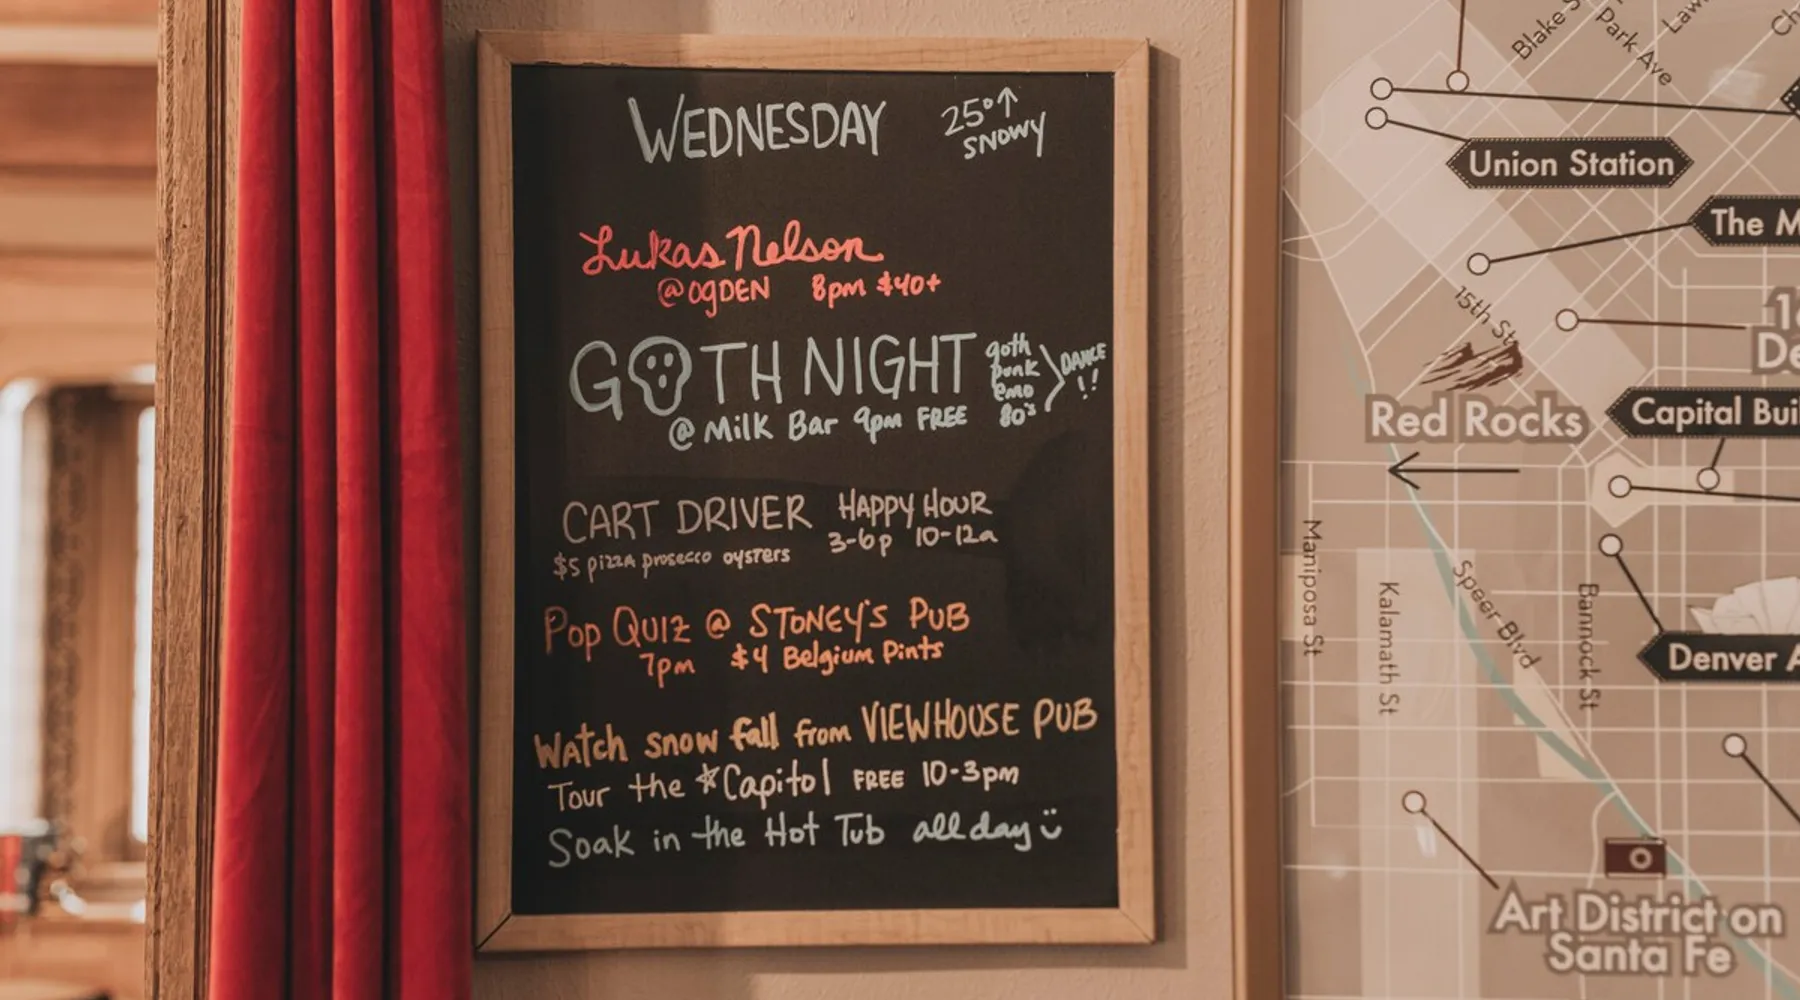 WEDNESDAY
25°↑
SNOWY
Lukas Nelson
@ OgDEN 8pm $40+
GOTH NIGHT
goth
punk
emo
80's
DANCE
!!
@ Milk Bar 9pm FREE
CART DRIVER HAPPY HOUR
3-6p 10-12a
$5 pizza prosecco oysters
Pop Quiz @ STONEY'S PUB
7pm $4 Belgium Pints
Watch snow fall from VIEWHOUSE PUB
Tour the *Capitol FREE 10-3pm
Soak in the Hot Tub all day
Blake S
Park Ave
Law
Ch
Union Station
The M
15th St
16
De
Red Rocks
Capital Buil
Mariposa St
Kalamath St
Speer Blvd
Bannock St
Denver A
Art District on
Santa Fe